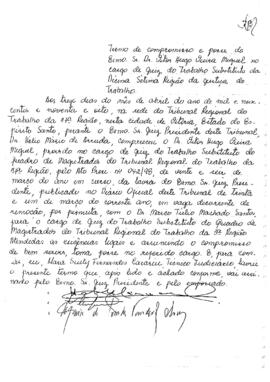 Termo de compromisso e posse do
Exmo Sr. Dr. Vitor Hugo Vieira Miguel no
cargo de Juiz do Trabalho Substituto da
Décima Sétima Região da Justiça do
Trabalho
Aos três dias do mês de abril do ano de mil e nove
centos e noventa e oito, na sede do Tribunal Regional do
Trabalho da 17ª Região, nesta cidade de Vitória, Estado do Es-
pírito Santo, perante o Exmo Sr. Juiz Presidente deste Tribunal,
Dr. Hélio Mário de Arruda, compareceu o Dr. Vitor Hugo Vieira
Miguel, provido no cargo de Juiz do Trabalho Substituto do
Quadro de Magistrados do Tribunal Regional do Trabalho da
17ª Região, pelo Ato Presi nº 042/98, de vinte e seis de
março do ano em curso, da lavra do Exmo Sr. Juiz Presi-
dente, publicado no Diário Oficial deste Tribunal de trinta
e um de março do corrente ano, em vaga decorrente de
remoção, por permuta, com o Dr. Marco Túlio Machado Santos,
para o cargo de Juiz do Trabalho Substituto do Quadro de
Magistrados do Tribunal Regional do Trabalho da 9ª Região
Atendidas as exigências legais e assumindo o compromisso
de bem servir, toma posse no referido cargo. E, para cons-
tar, eu, Mara Suely Fernandes, Técnico Judiciário lavrei
o presente termo que, após lido e achado conforme, vai assi-
nado pelo Exmo Sr. Juiz Presidente e pelo compromissado.